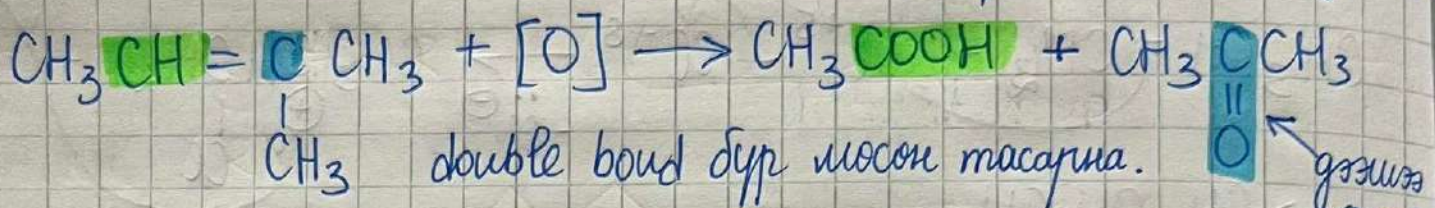 CH₃CH=CCH₃ + [O] → CH₃COOH + CH₃CCH₃
| ||
CH₃ double bond бүр мөсөн тасарна. O дээшээ